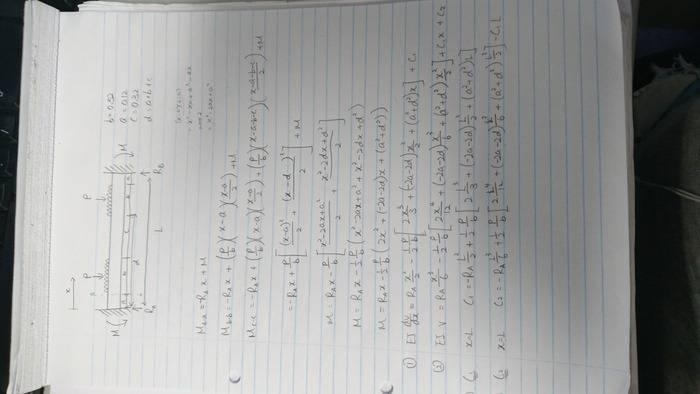 b = 0.52
a = 0.12
c = 0.32
d = a+b+c
x
P
P
M
M
R_A
R_B
L
M_aa = -R_A x + M
M_bb = -R_A x + (P/b)(x-a)((x-a)/2) + M
M_cc = -R_A x + (P/b)(x-a)((x-a)/2) + (P/b)(x-a-b-c)((x-a-b-c)/2) + M
= -R_A x + P/b [(x-a)²/2 + (x-d)²/2] + M
M = R_A x - P/b [(x²-2ax+a²)/2 + (x²-2dx+d²)/2]
M = R_A x - 1/2 P/b (x²-2ax+a²+x²-2dx+d²)
M = R_A x - 1/2 P/b (2x²+(-2a-2d)x+(a²+d²))
① EI dv/dx = R_A x²/2 - 1/2 P/b [2x³/3 + (-2a-2d)x²/2 + (a²+d²)x] + C₁
② EI v = R_A x³/6 - 1/2 P/b [2x⁴/12 + (-2a-2d)x³/6 + (a²+d²)x²/2] + C₁x + C₂
C₁ x=L C₁ = -R_A L²/2 + 1/2 P/b [2 L³/3 + (-2a-2d)L²/2 + (a²+d²)L]
C₂ x=L C₂ = -R_A L³/6 + 1/2 P/b [2 L⁴/12 + (-2a-2d)L³/6 + (a²+d²)L²/2] - C₁L